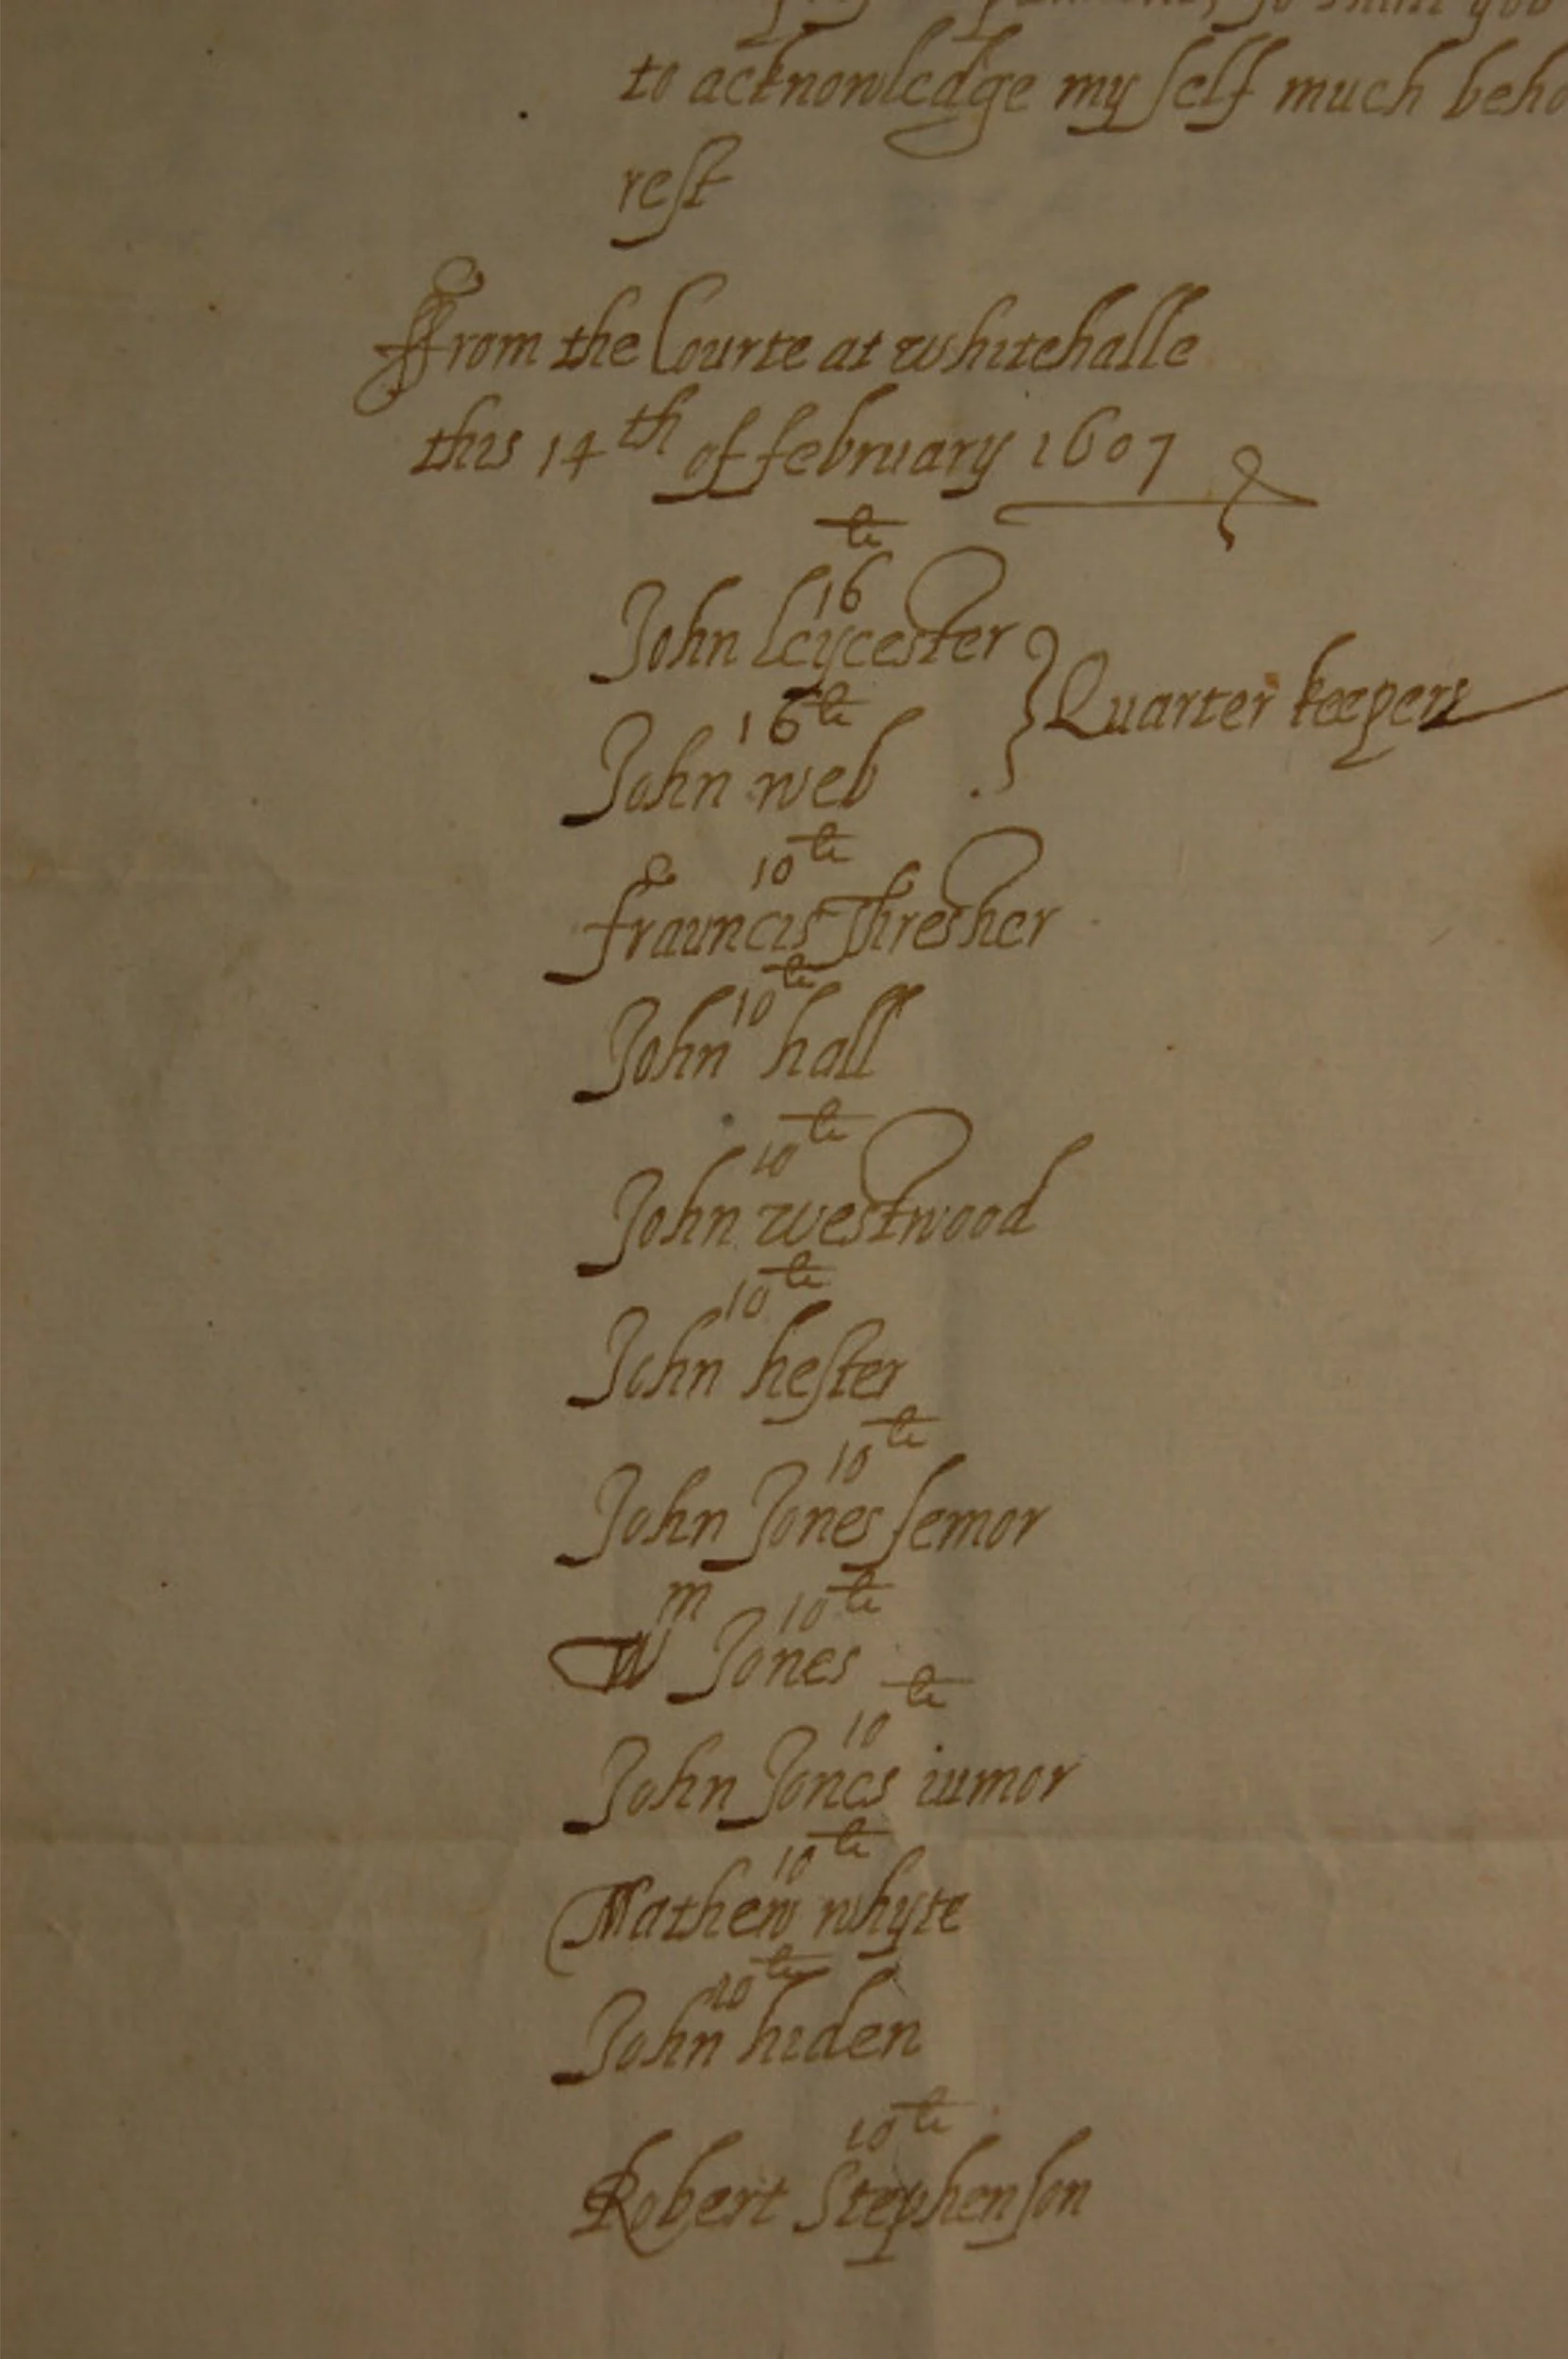 to acknowledge my self much beho
rest
From the Courte at whitehalle
this 14th of february 1607
16 li
John Leycester
Quarter keepers
16 li
John web
10 li
frauncis Thresher
10 li
John hall
10 li
John westwood
10 li
John hester
10 li
John Jones senior
10 li
Wm Jones
10 li
John Jones iunior
10 li
Mathew whyte
10 li
John hiden
10 li
Robert Stephenson